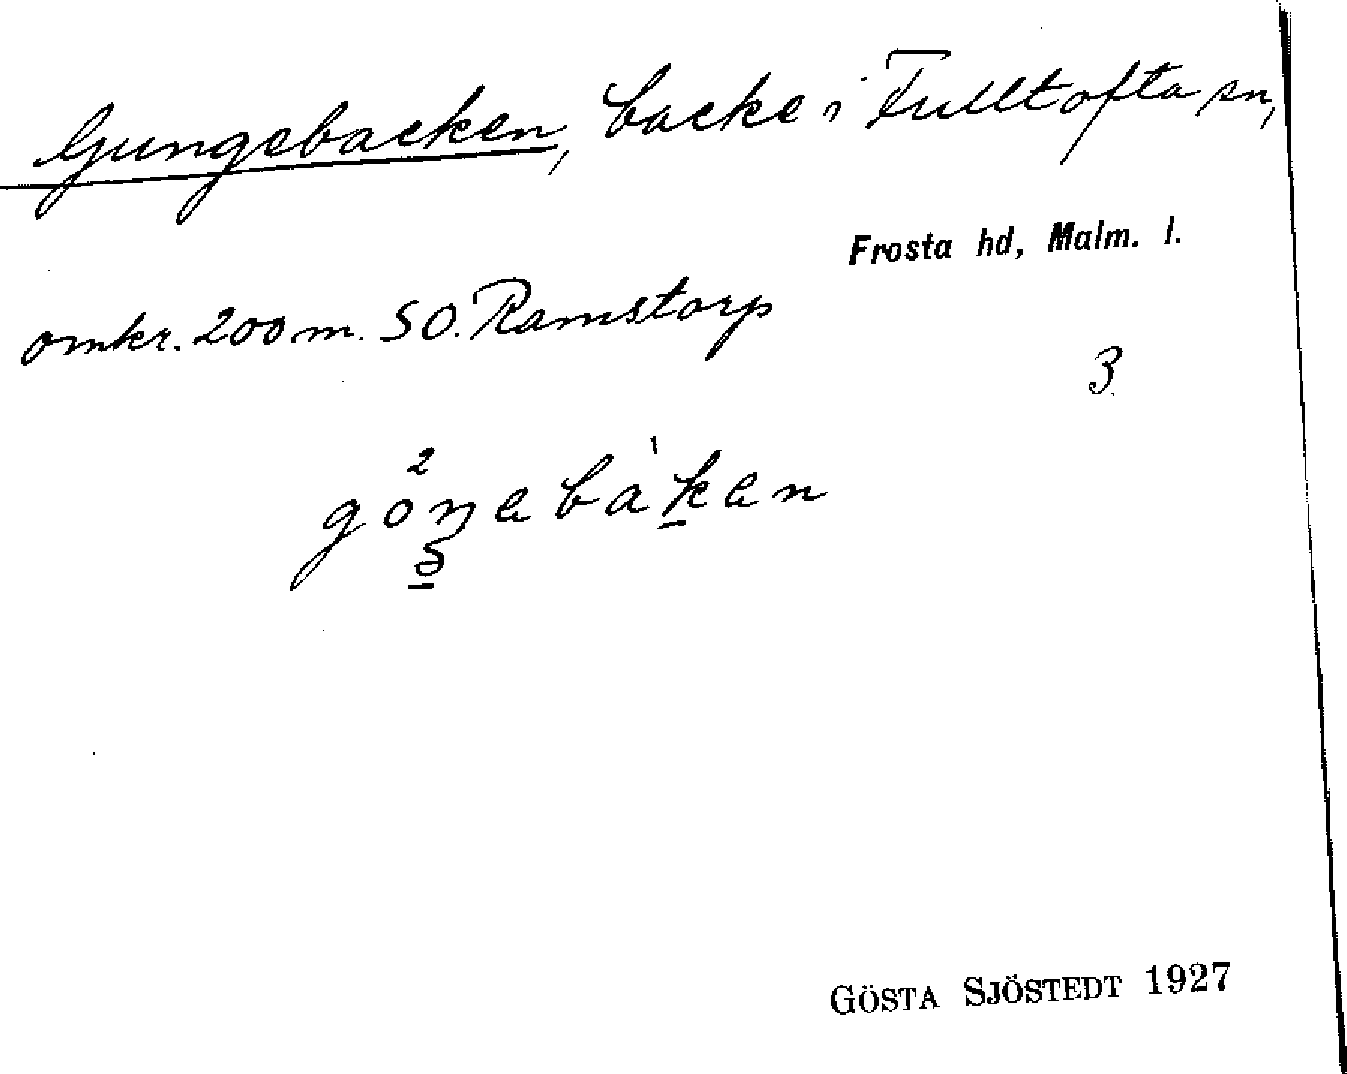 Gungebacken, backe i Fulltofta sn,
Frosta hd, Malm. l.
omkr. 200 m. SO. Ramstorp
3
2 1
goŋebaken
5
GÖSTA SJÖSTEDT 1927